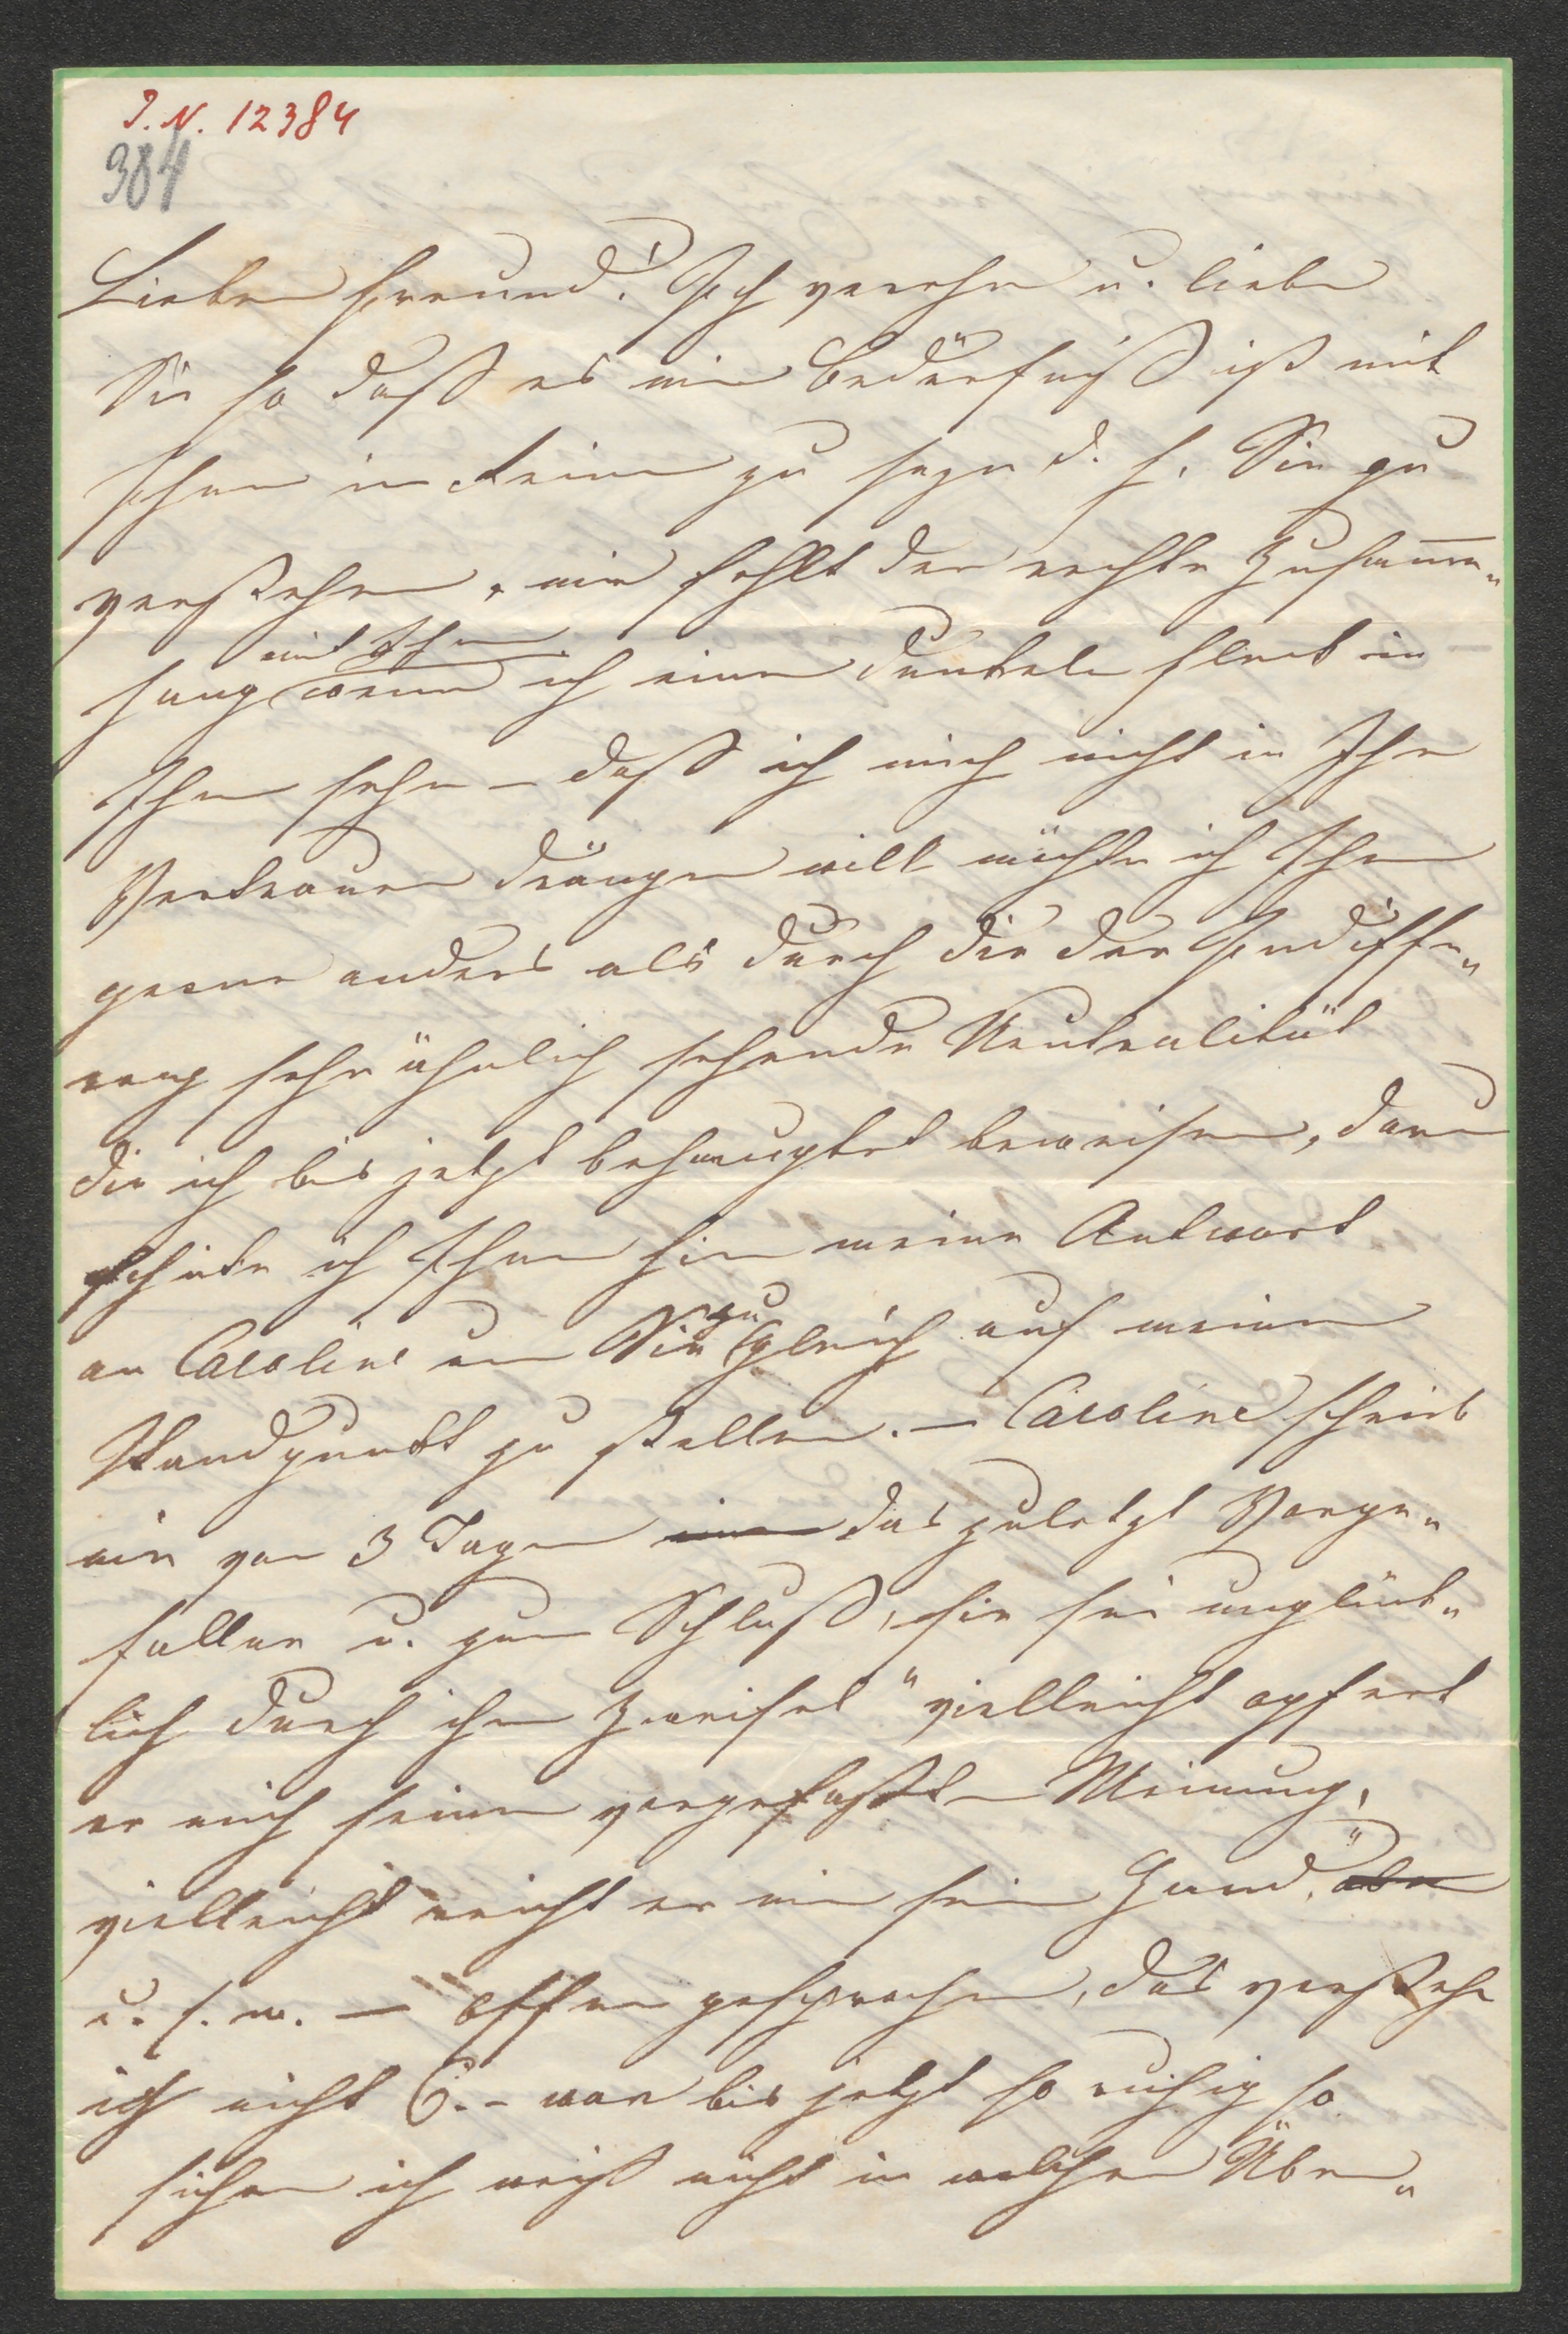 I. N. 12384
384
Lieber Freund! Ich verehre u. liebe
Sie so daß es mir Bedürfniß ist mit
Ihnen im Reinen zu seyn d. h. Sie zu
verstehen, mir fehlt der rechte Zusammen„
mit Ihnen
hang wenn ich einen dunkeln Fleck in
Ihnen sehe – daß ich mich nicht in Ihr
Vertrauen drängen will möchte ich Ihnen
gerne anders als durch die der Indiffe„
renz sehr ähnlich sehende Neutralität
die ich bis jetzt behauptet beweisen, darum
schicke ich Ihnen hier meine Antwort
zu
an Caroline um Sie gleich auf meinen
Standpunkt zu stellen. – Caroline schrieb
mir vor 3 Tagen das zuletzt Vorge„
fallne u. zum Schluß, sie sei unglück„
lich durch ihre Zweifel "vielleicht opfert
er mich seiner vorgefaßten Meinung,
vielleicht reicht er mir seine Hand" aber
u. s. w. – offen gesprochen, das verstehe
ich nicht C. – war bis jetzt so ruhig so
sicher ich weiß nicht in welcher Über„